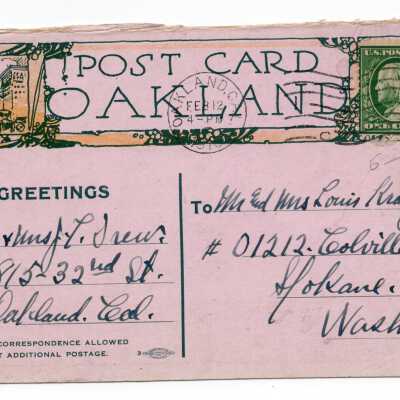 POST CARD
OAKLAND
OAKLAND, CAL
FEB 12
4-PM
U.S. POS
GREETINGS
& Mrs J. T. Drew.
815-32nd St.
Oakland. Cal.
CORRESPONDENCE ALLOWED
T ADDITIONAL POSTAGE.
To Mr and Mrs Louis
# 01212. Colville
Spokane.
Wash